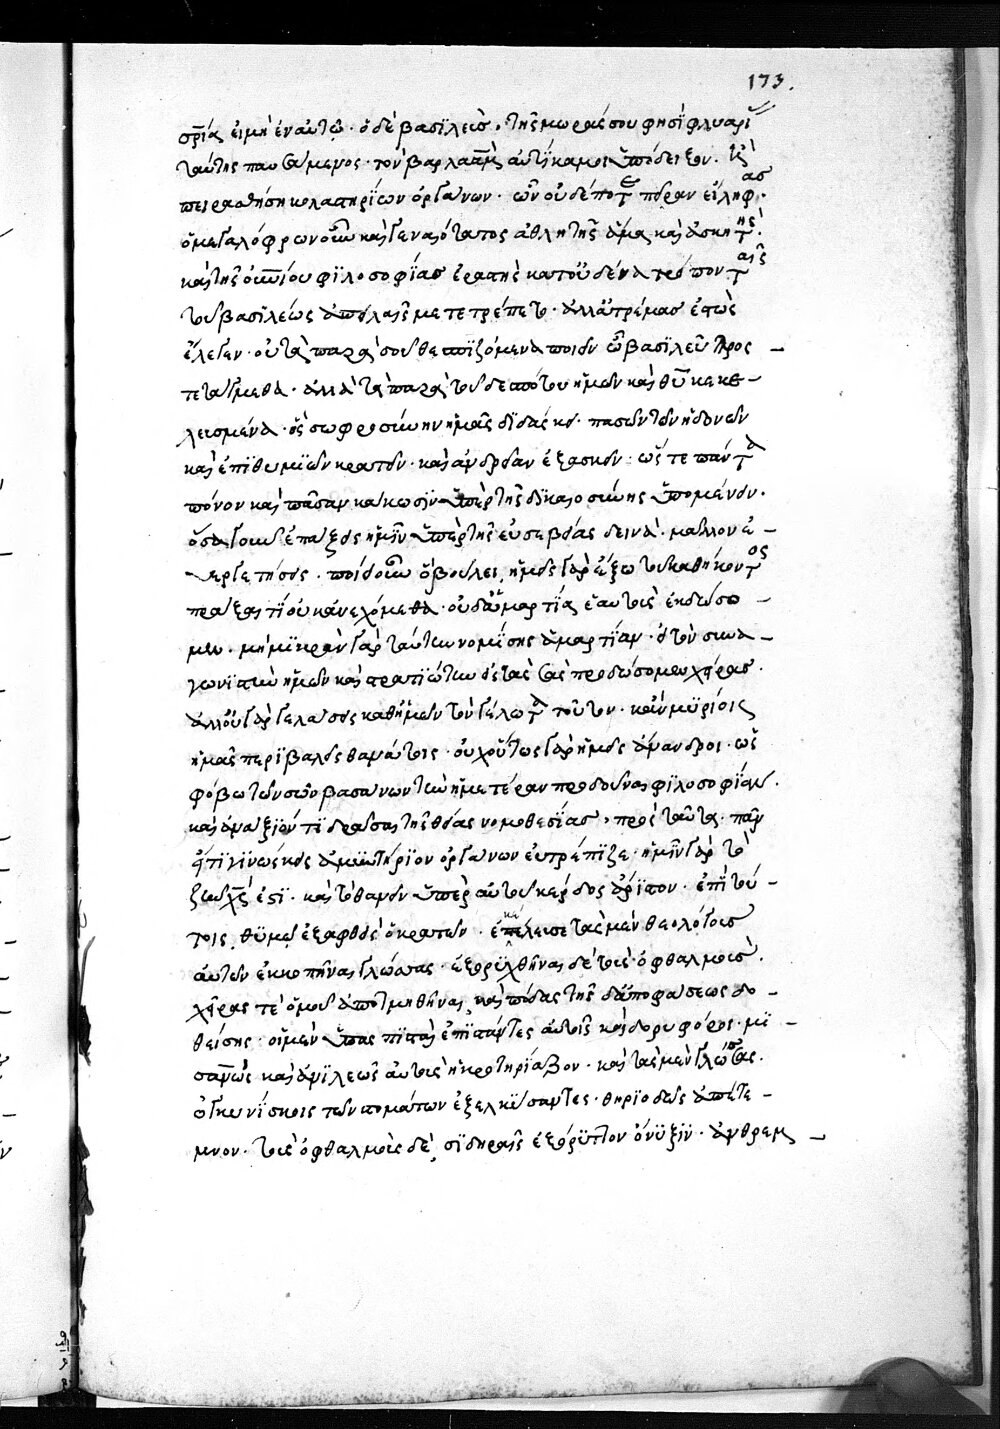 173.
σρίας εἰμὴ ἐν αὐτῷ · ὁ δὲ βασιλεὺς, τῆς μωρᾶς σου φησὶ φλυαρί
ταύτης παυσάμενος · τὸν βαρλαὰμ αὐτίκα μοι ὑπόδειξον. ἢ
πειραθήση κολαστηρίων ὀργάνων · ὧν οὐδέποτε πεῖραν εἴληφας.
ὁ μεγαλόφρων οὖν καὶ γενναιότατος ἀθλητὴς ἅμα καὶ ἀσκητής.
καὶ τῆς οὐνίου φιλοσοφίας ἐραστὴς κατ' οὐδένα τρόπον ταῖς
τοῦ βασιλέως ἀπειλαῖς μετετρέπετο · ἀλλ' ἀτρέμας ἑστὼς
ἔλεγεν · οὐ τὰ παρὰ σοῦ θεσπιζόμενα ποιεῖν ὦ βασιλεῦ προς
τετάγμεθα · ἀλλὰ τὰ παρὰ τοῦ δεσπότου ἡμῶν καὶ θυ κεκε
λευσμένα · ὃς σωφροσύνην ἡμᾶς διδάσκει · πασῶν τῶν ἡδονῶν
καὶ ἐπιθυμιῶν κρατεῖν · καὶ ἀνδρείαν ἐξασκεῖν · ὥστε πάντα
πόνον καὶ πᾶσαν κάκωσιν ὑπὲρ τῆς δικαιοσύνης ὑπομένειν.
ὅσα γοῦν ἐπάξεις ἡμῖν ὑπὲρ τῆς εὐσεβείας δεινὰ · μᾶλλον εὐ
εργετήσεις · ποίει οὖν ὃ βούλει, ἡμεῖς γὰρ ἔξω τοῦ καθήκοντος
πρᾶξαί τι οὐκ ἀνεχόμεθα · οὐδ' ἁμαρτία ἑαυτοὺς ἐκδώσο
μεν · μὴ μικρὰν γὰρ ταύτην νομίσης ἁμαρτίαν · εἰ τὸν συνα
γωνιστὴν ἡμῶν καὶ στρατιώτην εἰς τὰς σὰς προδώσομεν χεῖρας.
ἀλλ' οὐ γὰρ γελάσεις καθ' ἡμῶν τὸν γέλωτα τοῦτον · κἂν μυρίοις
ἡμᾶς περιβαλεῖς θανάτοις · οὐχ οὕτως γὰρ ἡμεῖς ἄνανδροι · ὡς
φόβω τῶν σῶν βασάνων τὴν ἡμετέραν προδοῦναι φιλοσοφίαν.
καὶ ἀνάξιόν τι δρᾶσαι τῆς θείας νομοθεσίας, πρὸς ταῦτα · πᾶν
ὅτι γινώσκεις ἀμυντήριον ὄργανον εὐτρέπιζε · ἡμῖν γὰρ τὸ
ζῆν χς ἐστὶ · καὶ τὸ θανεῖν ὑπὲρ αὐτοῦ κέρδος ἄριστον · ἐπὶ τού
τοις, θυμῷ ἐξαφθεὶς ὁ κρατῶν · ἐκέλευσε τὰς μὲν θεολόγους
αὐτῶν ἐκκοπῆναι γλώσσας · ἐξορυχθῆναι δὲ τοὺς ὀφθαλμούς.
χεῖρας τὲ ὁμοῦ ἀποτμηθῆναι, καὶ πόδας τῆς δ' ἀποφάσεως δο
θείσης · οἱ μὲν ὑπασπισταὶ ἐπιστάντες αὐτοῖς καὶ δορυφόροι · μι
σανῶς καὶ ἀνιλεῶς αὐτοὺς ἠκρωτηρίαζον · καὶ τὰς μὲν γλώσσας.
ὀγκινίσκοις τῶν στομάτων ἐξελκύσαντες · θηριοδῶς ἀπέτε
μνον · τοὺς ὀφθαλμοὺς δὲ, σιδηραῖς ἐξώρυττον ὄνυξιν · ἀρθρεμ